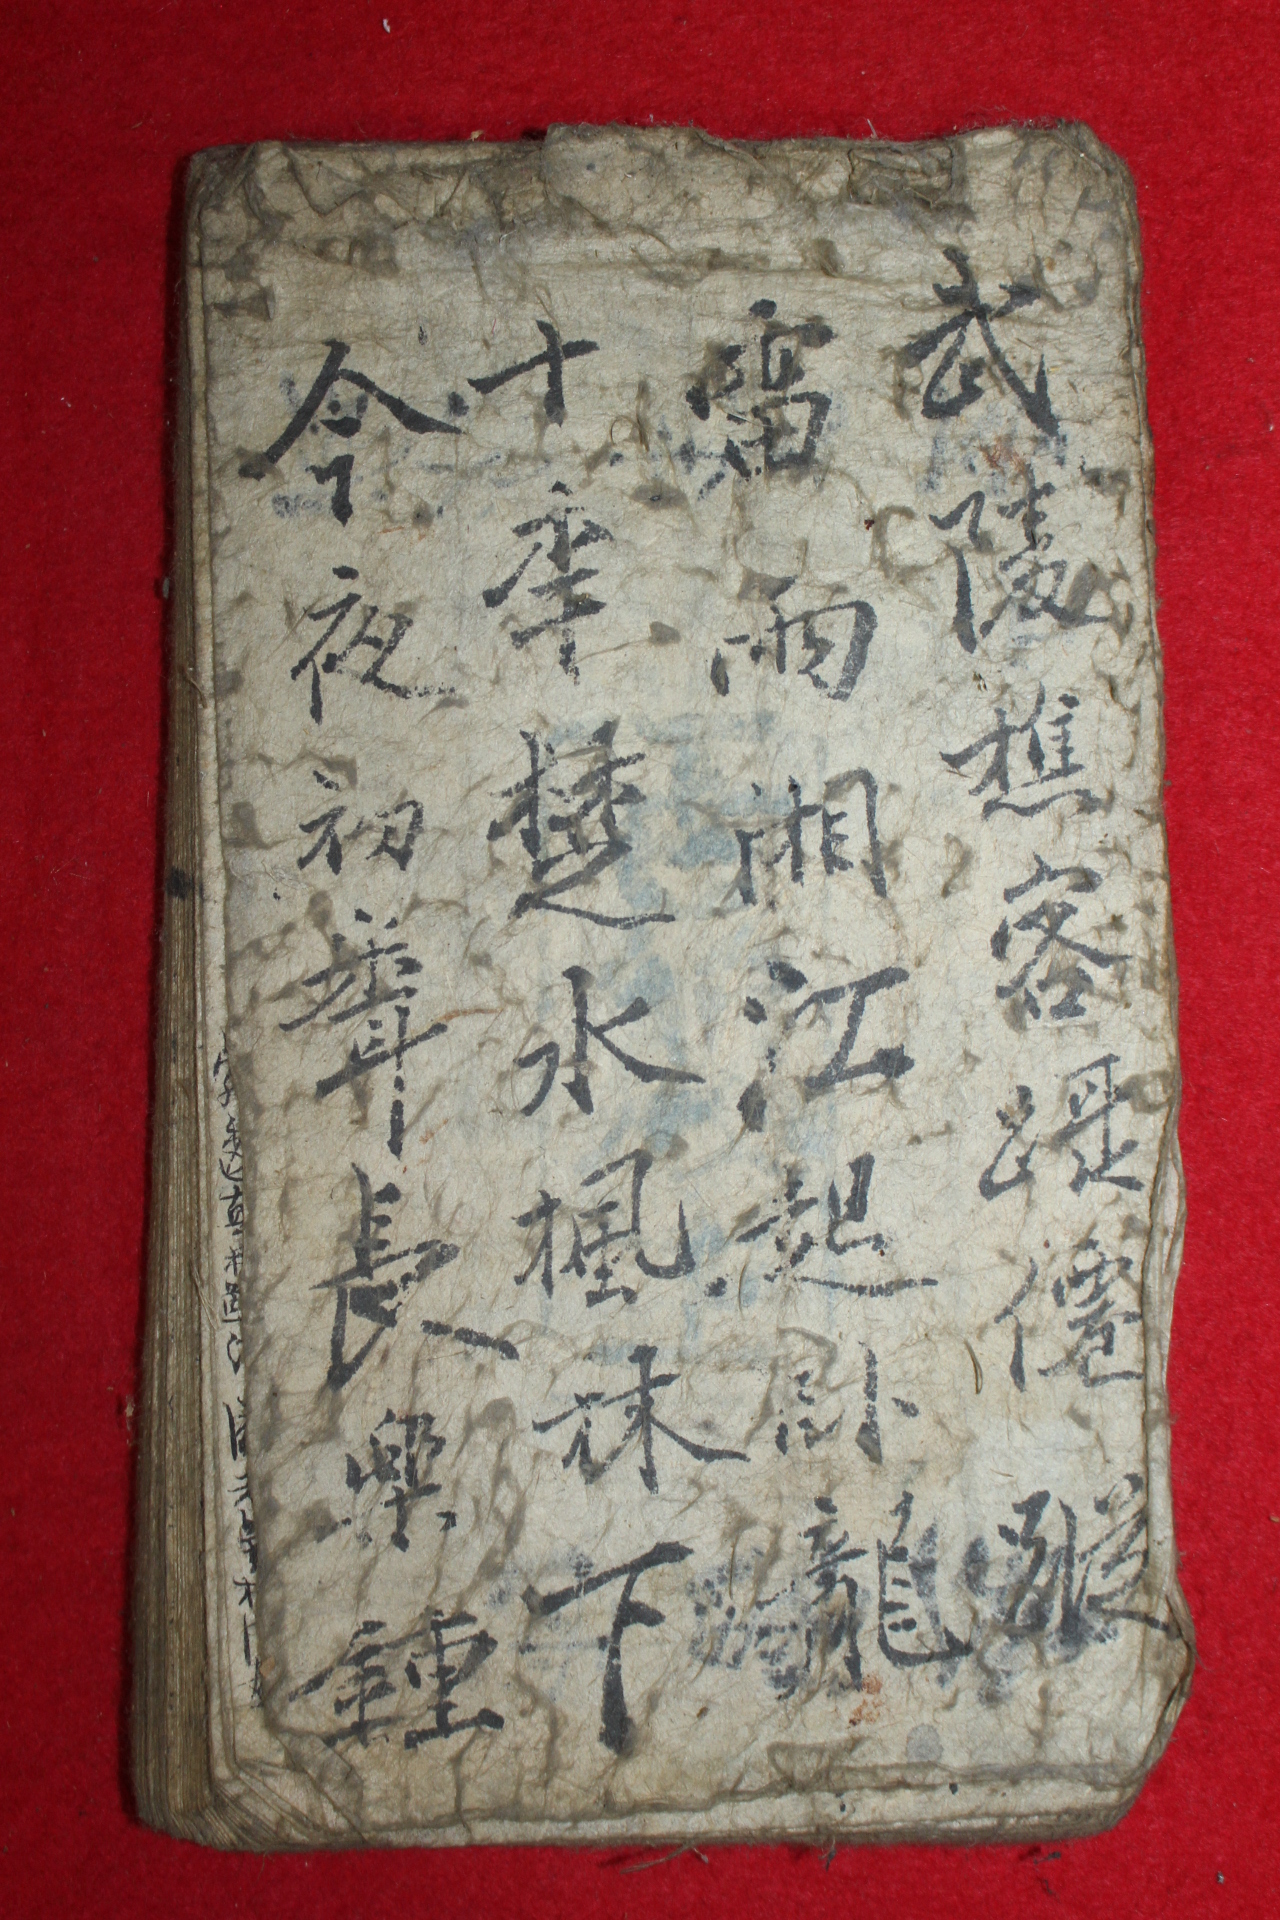 武陵樵客躡僊蹤
雷雨湘江起卧龍
十秊楚水楓林下
今夜初聞長樂鍾